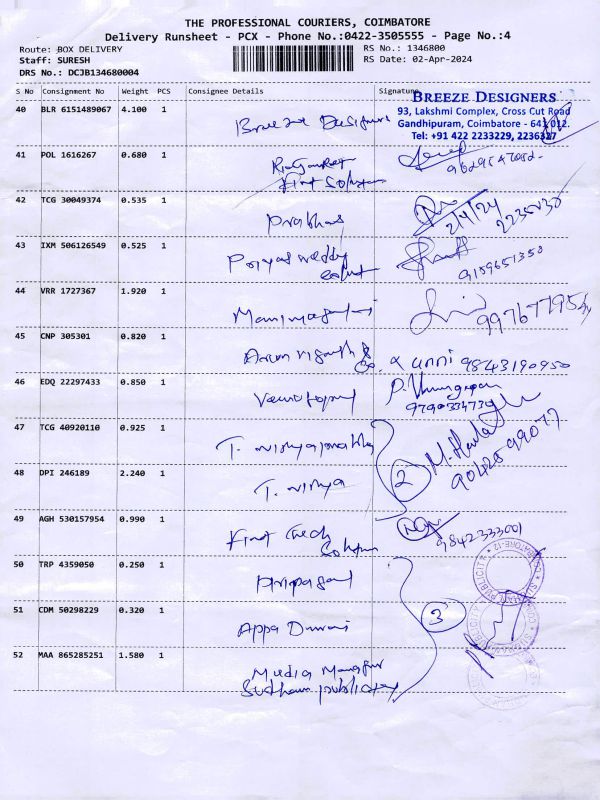 THE PROFESSIONAL COURIERS, COIMBATORE
Delivery Runsheet - PCX - Phone No.:0422-3505555 - Page No.:4
Route: BOX DELIVERY
RS No.: 1346800
Staff: SURESH
RS Date: 02-Apr-2024
DRS No.: DCJB134680004
S No Consignment No Weight PCS Consignee Details Signature
BREEZE DESIGNERS
93, Lakshmi Complex, Cross Cut Road
Gandhipuram, Coimbatore - 641 012.
Tel: +91 422 2233229, 2236327
40 BLR 6151489067 4.100 1
41 POL 1616267 0.680 1
First Solution
42 TCG 30049374 0.535 1 Prabhas 2/4/24 2235038
43 IXM 506126549 0.525 1 9159651350
44 VRR 1727367 1.920 1
45 CNP 305301 0.820 1 Arun & Co. 9843190950
46 EDQ 22297433 0.850 1 Venugopal
9790334730
47 TCG 40920110 0.925 1
48 DPI 246189 2.240 1 T. Nishya 2
49 AGH 530157954 0.990 1 First Tech 9842333001
Solution
50 TRP 4359050 0.250 1
51 CDM 50298229 0.320 1 Appa Durai 3
52 MAA 865285251 1.580 1 Media Manager